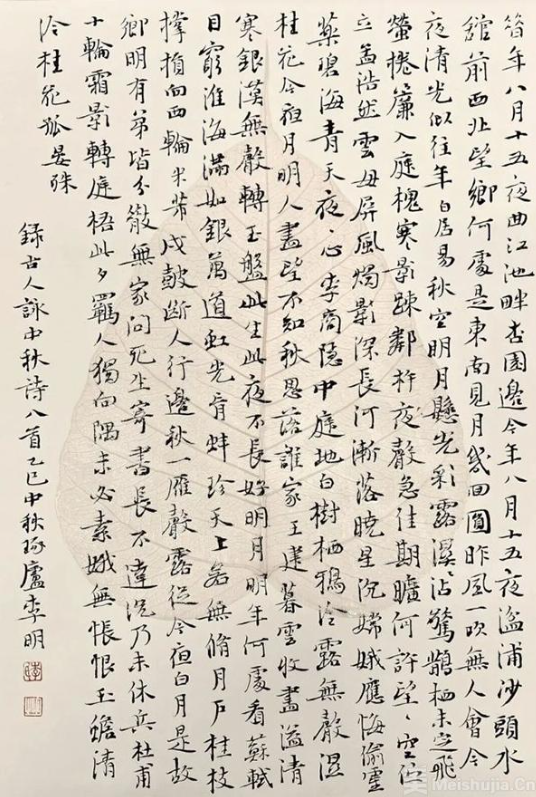 昔年八月十五夜曲江池畔杏園邊今年八月十五夜湓浦沙頭水
館前西北望鄉何處是東南見月幾回圓昨風一吹無人會今
夜清光似往年白居易秋空明月懸光彩露溼沾驚鵲棲未定飛
螢捲簾入庭槐寒影疎鄰杵夜聲急佳期曠何許望〻空佇
立孟浩然雲母屏風燭影深長河漸落曉星沉嫦娥應悔偷靈
藥碧海青天夜〻心李商隱中庭地白樹棲鴉冷露無聲溼
桂花今夜月明人盡望不知秋思落誰家王建暮雲收盡溢清
寒銀漢無聲轉玉盤此生此夜不長好明月明年何處看蘇軾
目窮淮海滿如銀萬道虹光育蚌珍天上若無脩月戶桂枝
撐損向西輪米芾戍鼓斷人行邊秋一雁聲露從今夜白月是故
鄉明有弟皆分散無家問死生寄書長不達況乃未休兵杜甫
十輪霜影轉庭梧此夕羈人獨向隅未必素娥無悵恨玉蟾清
冷桂花孤晏殊
錄古人詠中秋詩八首乙巳中秋琢廬李明
Meishujia.Cn